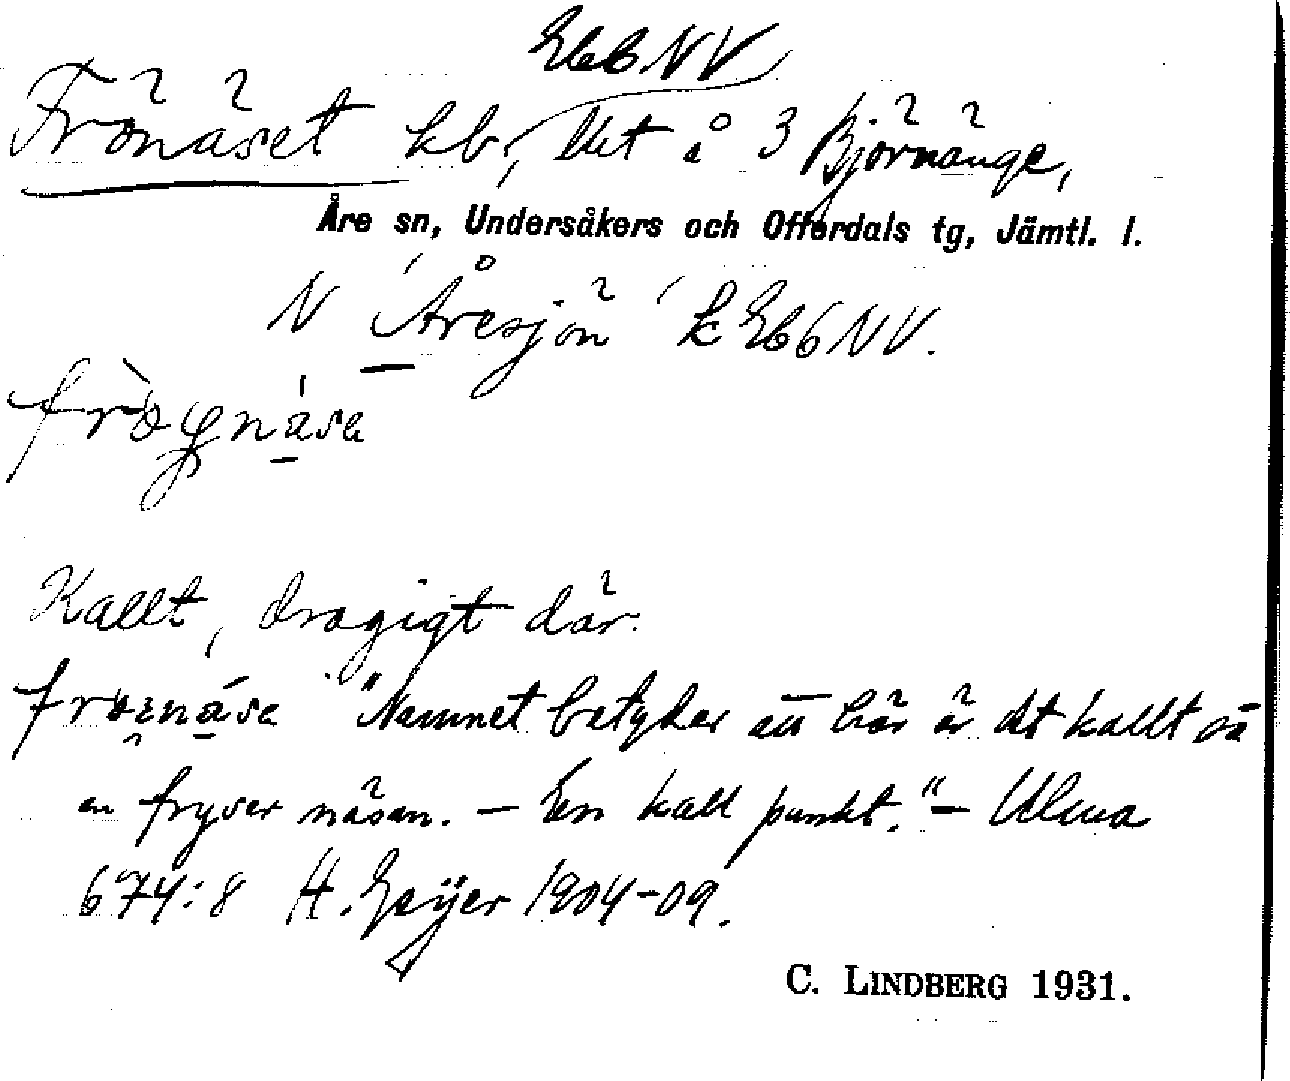 GebNV
Frönäset kb, litt å 3 Björnänge,
Åre sn, Undersåkers och Offerdals tg, Jämtl. l.
N Åresjön k Geb NV.
Kallt, dragigt där.
"Namnet betyder att här är det kallt så
en fryser näsan. – En kall punkt." – Ulma
674:8 H. Geijer 1904-09.
C. LINDBERG 1931.